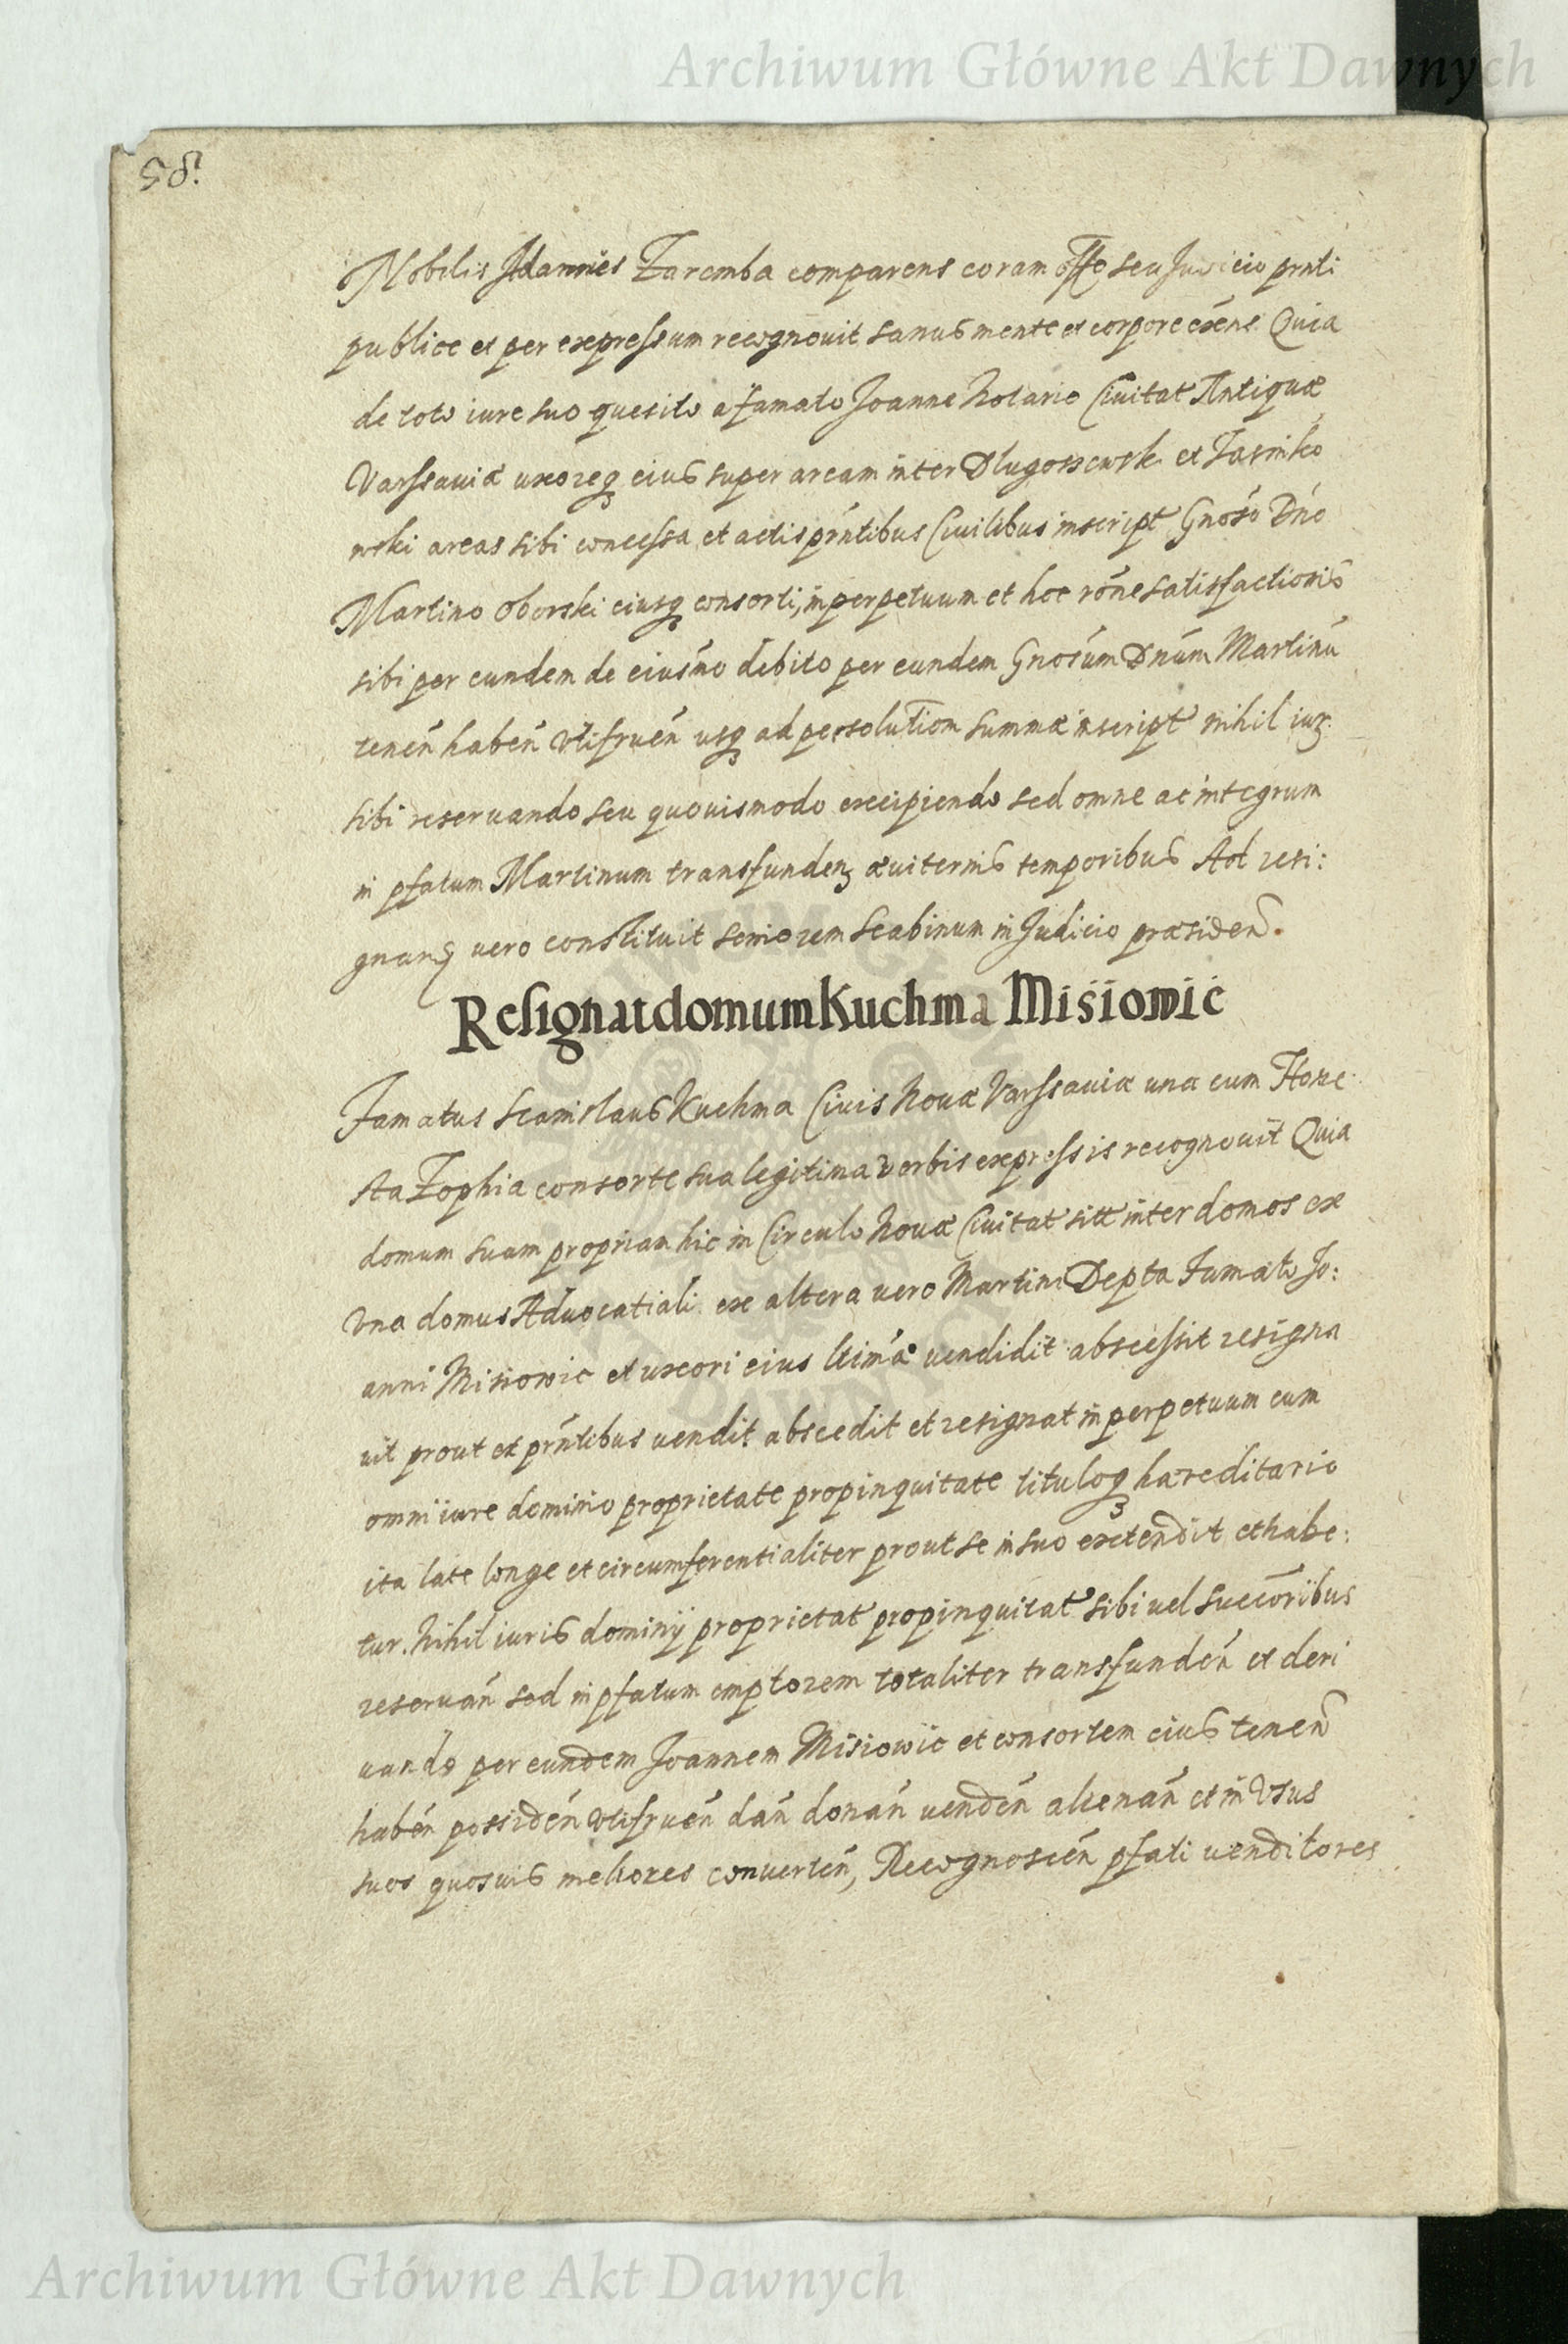 Archiwum Główne Akt Dawnych
58.
Nobilis Joannes Zaremba comparens coram offo seu Judicio prnti
publice et per expressum recognouit sanus mente et corpore exens Quia
de toto iure suo quesito a famato Joanne Notario Ciuitat Antiquæ
Varssauiæ uxoreq eius super aream inter Dlugossewski et Jasinko
wski areas sibi concessa et actis prntibus Ciuilibus inscript Gnoso Dno
Martino Oborski eiusq consorti, in perpetuum et hoc rone satisfactionis
sibi per eundem de eiusmo debito per eundem Gnosum Dnum Martinu
tenen haben Vtifruen usq ad persolutiom summæ inscript nihil iur
sibi reseruando seu quouismodo excipiendo sed omne ac integrum
in pfatum Martinum transfunden æuiternis temporibus Ad resi:
gnand vero constituit seniorem Scabinum in Judicio præsiden.
Resignat domum Kuchma Misiowic
Famatus Stanislaus Kuchma Ciuis Nouæ Varssauiæ una cum Hone
sta Zophia consorte sua legitima verbis expressis recognouit Quia
domum suam propriam hic in Circulo Nouæ Ciuitat sitt inter domos ex
Vna domus Aduocatiali ex altera vero Martini Depta Famato Jo:
anni Misiowic et uxori eius ltimæ vendidit abscessit resigna
uit prout et prntibus uendit abscedit et resignat in perpetuum cum
omni iure dominio proprietate propinquitate tituloq hæreditario
ita late longe et circumferentialiter prout se in suo extendit et habe:
tur. Nihil iuris dominij proprietat propinquitat sibi uel succoribus
reseruan sed in pfatum emptorem totaliter transfunden et deri
uando per eundem Joannem Misiowic et consortem eius tenen
haben possiden Vtifruen dan donan uenden alienan et in Vsus
suos quosuis meliores conuerten, Recognoscen pfati uenditores
Archiwum Główne Akt Dawnych